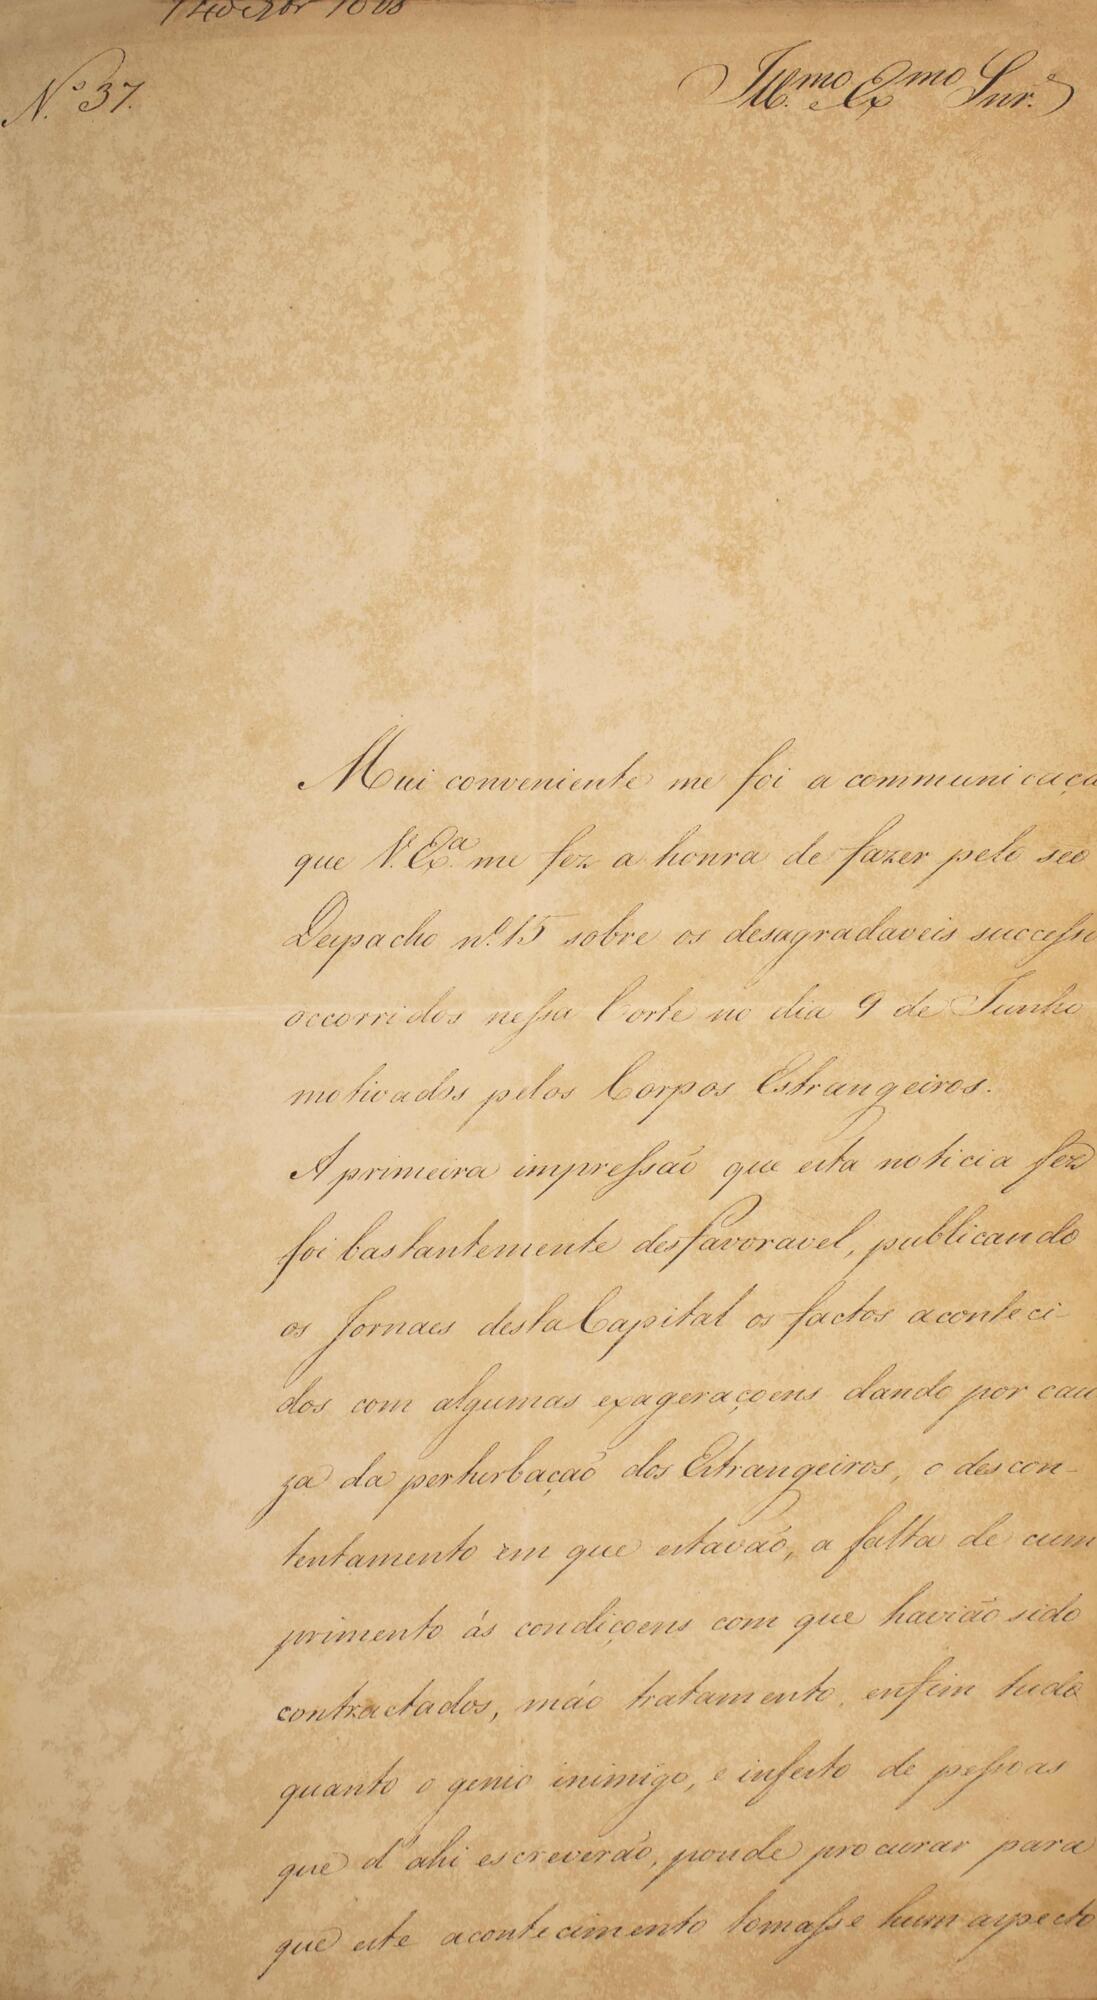 Nº 37.
Illmo. e Exmo Snr.
Mui conveniente me foi a communicaçã
que V. Exª. me fez a honra de fazer pelo seo
Despacho nº. 15 sobre os desagradaveis successo
occorridos nessa Corte no dia 9 de Junho
motivados pelos Corpos Estrangeiros.
A primeira impressão que esta noticia fez
foi bastantemente desfavoravel, publicando
os Jornaes desta Capital os factos aconteci-
dos com algumas exageraçoens dando por cau
za da perturbação dos Estrangeiros, o descon-
tentamento em que estavão, a falta de cum
primento ás condiçoens com que havião sido
contractados, máo tratamento, enfim tudo
quanto o genio inimigo, e infesto de pessoas
que d'ahi escreverão, poude procurar para
que este acontecimento tomasse hum aspecto